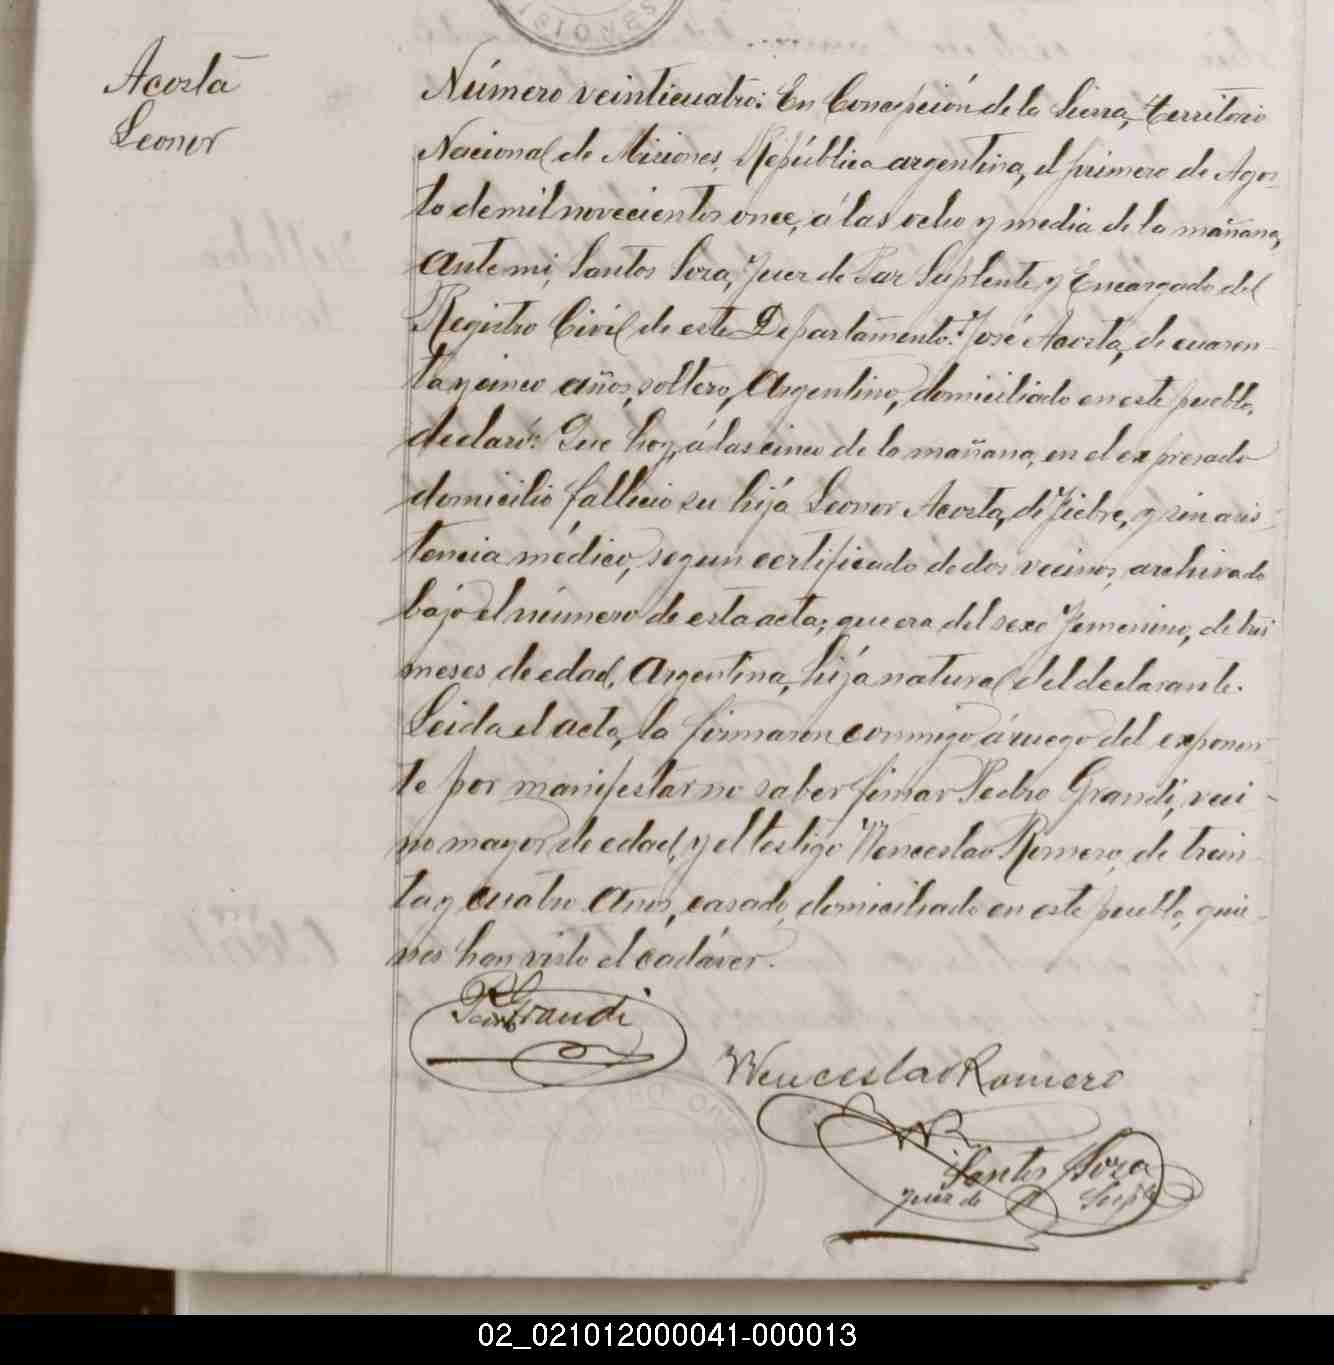 Acosta
Leonor
Número veinticuatro: En Concepción de la Sierra, Territorio
Nacional de Misiones, República argentina, el primero de Agos-
to de mil novecientos once, á las ocho y media de la mañana,
Ante mi, Santos Soza, Juez de Paz Suplente y Encargado del
Registro Civil de este Departamento: José Acosta, de cuaren-
ta y cinco años, soltero, Argentino, domiciliado en este pueblo,
declaró: Que hoy, á las cinco de la mañana, en el expresado
domicilio fallecio su hijá Leonor Acosta, de Fiebre, y sin asis-
tencia médica, segun certificado de dos vecinos, archivado
bajo el número de esta acta; que era del sexo Femenino, de tres
meses de edad, Argentina, hijá natural del declarante.
Leida el acta, la firmaron conmigo á ruego del exponen-
te por manifestar no saber fimar Pedro Grandi, veci-
no mayor de edad, y el testigo Wenceslao Romero, de trein-
ta y cuatro Años, casado, domiciliado en este pueblo, quie-
nes han visto el cadáver.
Pedro Grandi
Wenceslao Romero
Santos Soza
Juez de P Supte
02_021012000041-000013